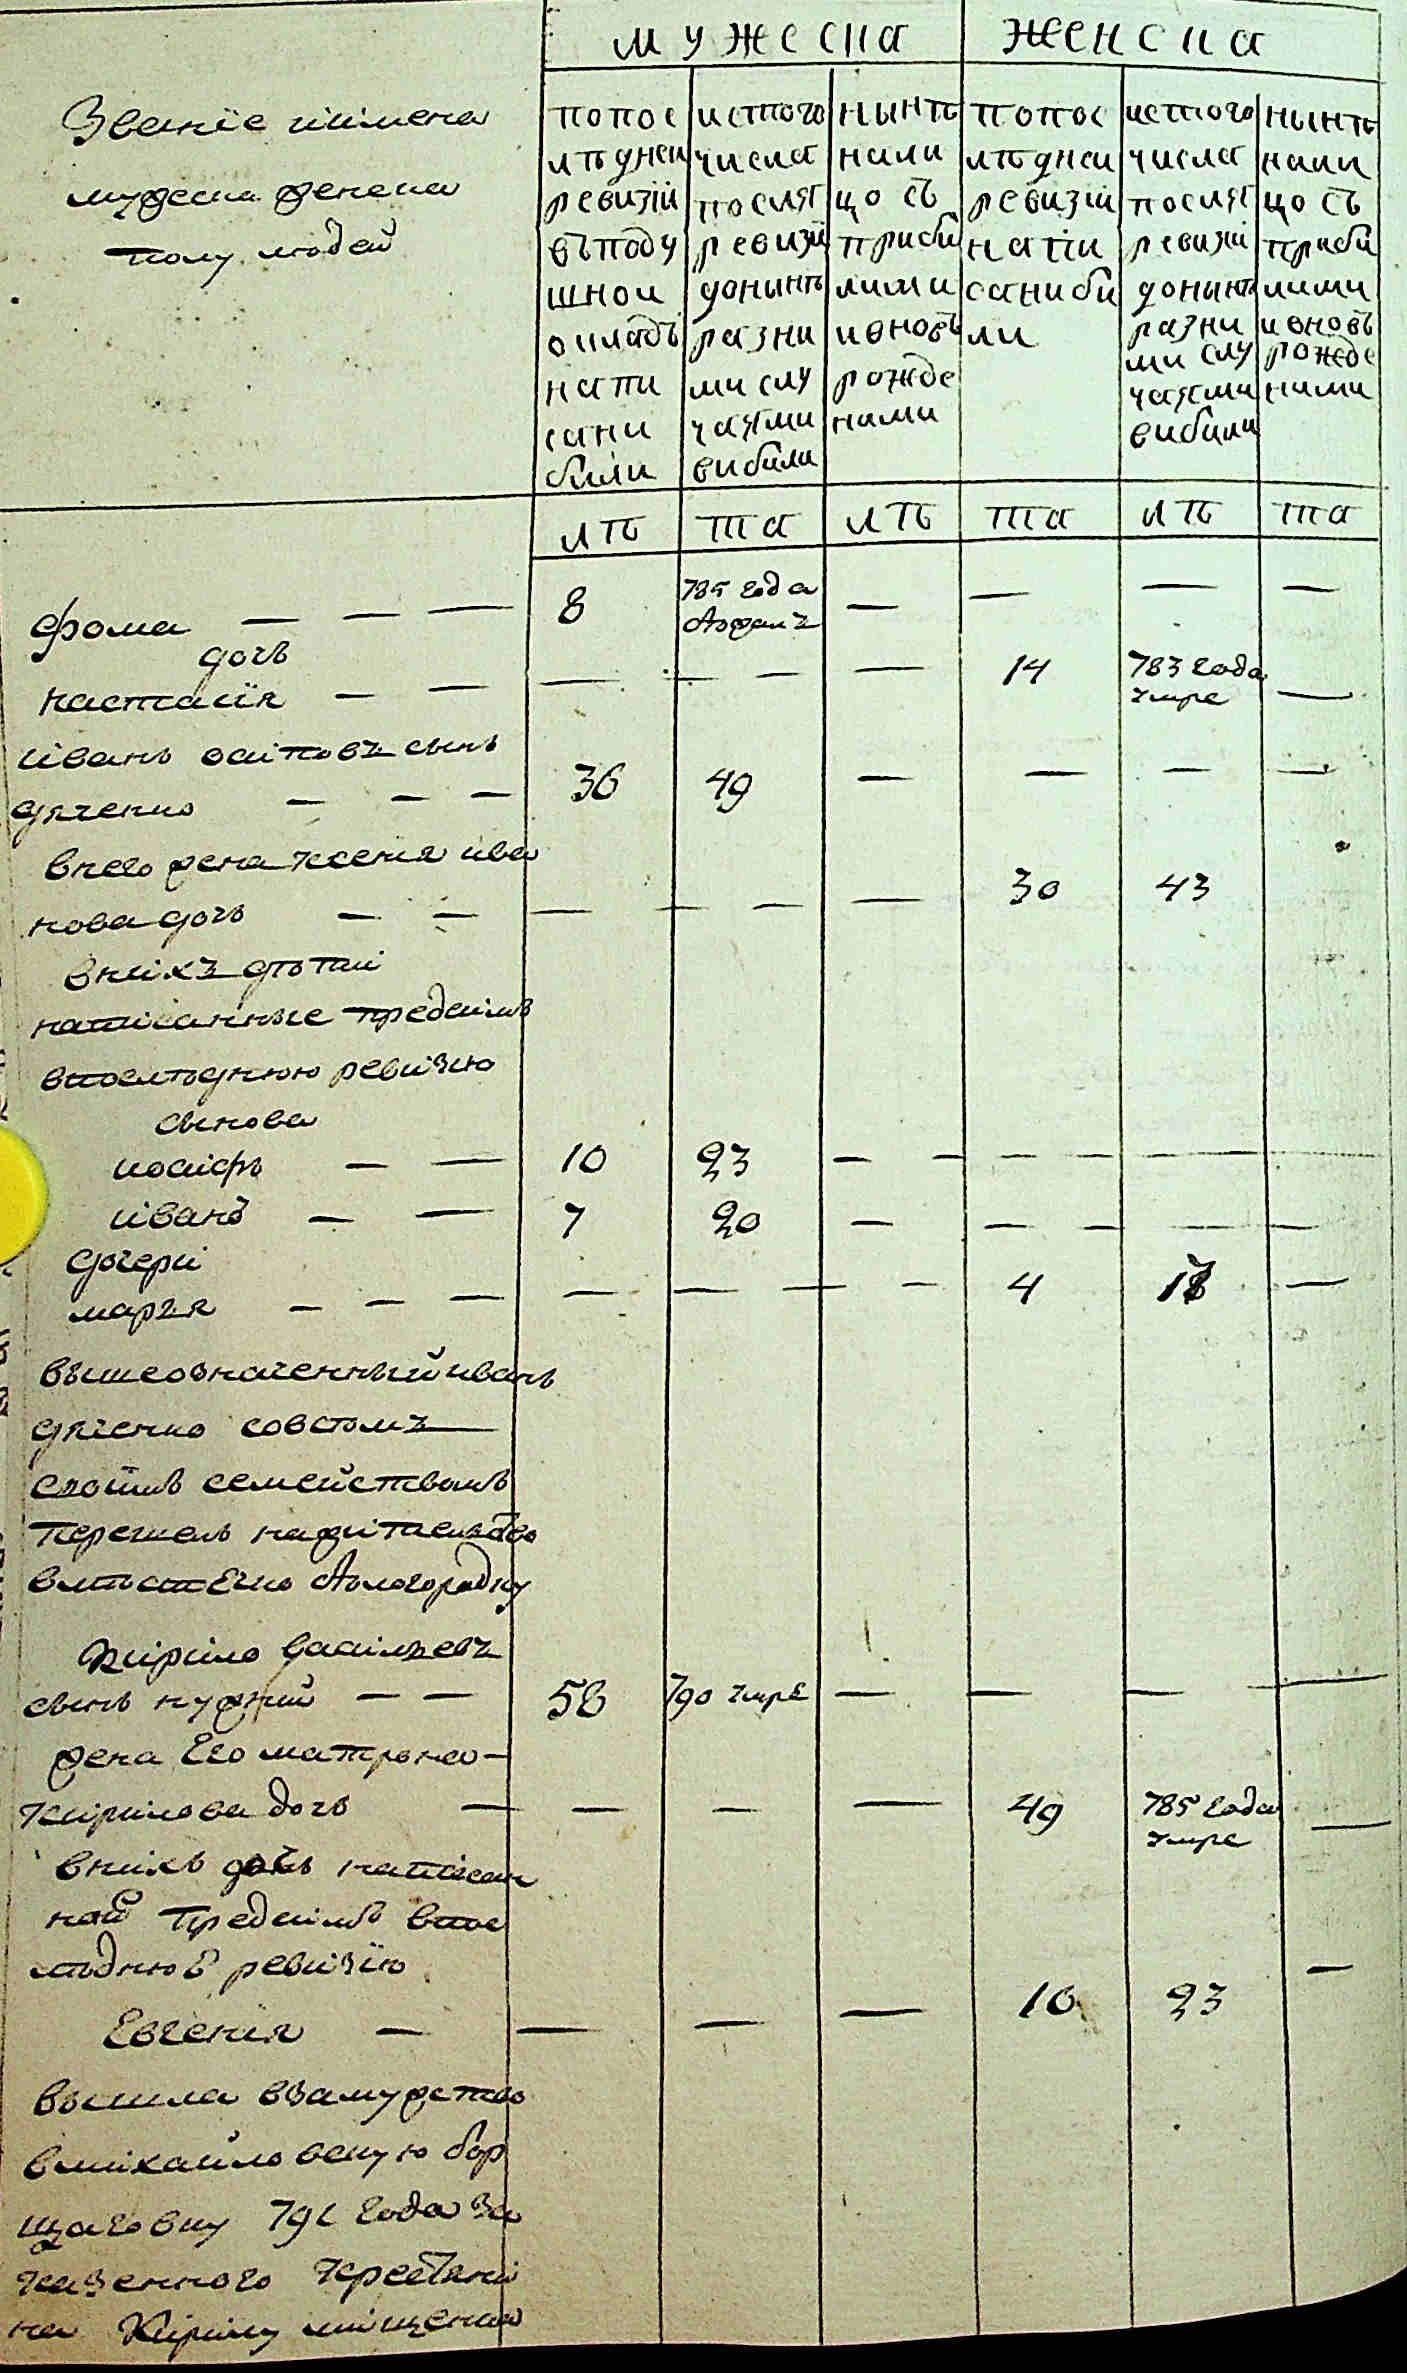 мужеска женска
Званїе иимена
мужеска женска
полу людей
попос
лѣднеи
ревизїи
въподу
шнои
окладъ
напи
сани
били
истого
числа
послѣ
ревизїи
донынѣ
разни
ми слу
чаями
вибили
нынѣ
нали
цо съ
приби
лими
ивновъ
рожде
ними
попос
лѣднеи
ревизїи
напи
саниби
ли
истого
числа
послѣ
ревизїи
донынѣ
разни
ми слу
чаями
вибили
нынѣ
нали
цо съ
приби
лими
ивновъ
рожде
ними
лѣ та лѣ та лѣ та
фома — — 8 785 года — — — —
дочь
настасїя — — — — — — 14 783 года
умре —
іванъ осіповъ сынъ
дяченко — — — 36 49 — — — —
внего жена ксенія ива
нова дочь — — — — — — 30 43
вніхъ дѣти
напісанные предсимъ
впослѣднюю ревизію
сынова
иосіфъ — — 10 23 — — — — — —
іванъ — — 7 20 — — — — —
дочери
марья — — — — — — — 4 —
вышеозначенный иванъ
дяченко совсѣмъ
своимъ семействомъ
перешелъ нажітельство
вмѣстечко
Кирило васільевъ
сынъ — — 58 790 умре — — — —
жена Его матрона —
Кирилова дочь — — — — 49 785 года
умре —
вніхъ дочь написан
ной предсимъ впос
лѣднюю ревизїю
Евгенія — — — — 10 23 —
вышла взамужство
вмихайловскую бор
щаговку 791 года за
казенного крестяни
на Кирилу